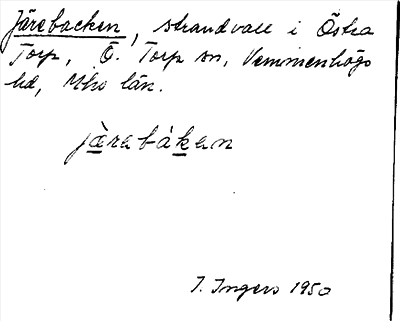 Järabacken, strandvall i Östra
Torp, Ö. Torp sn, Vemmenhögs
hd, Mho län.
jàrabákan
I. Ingers 1950